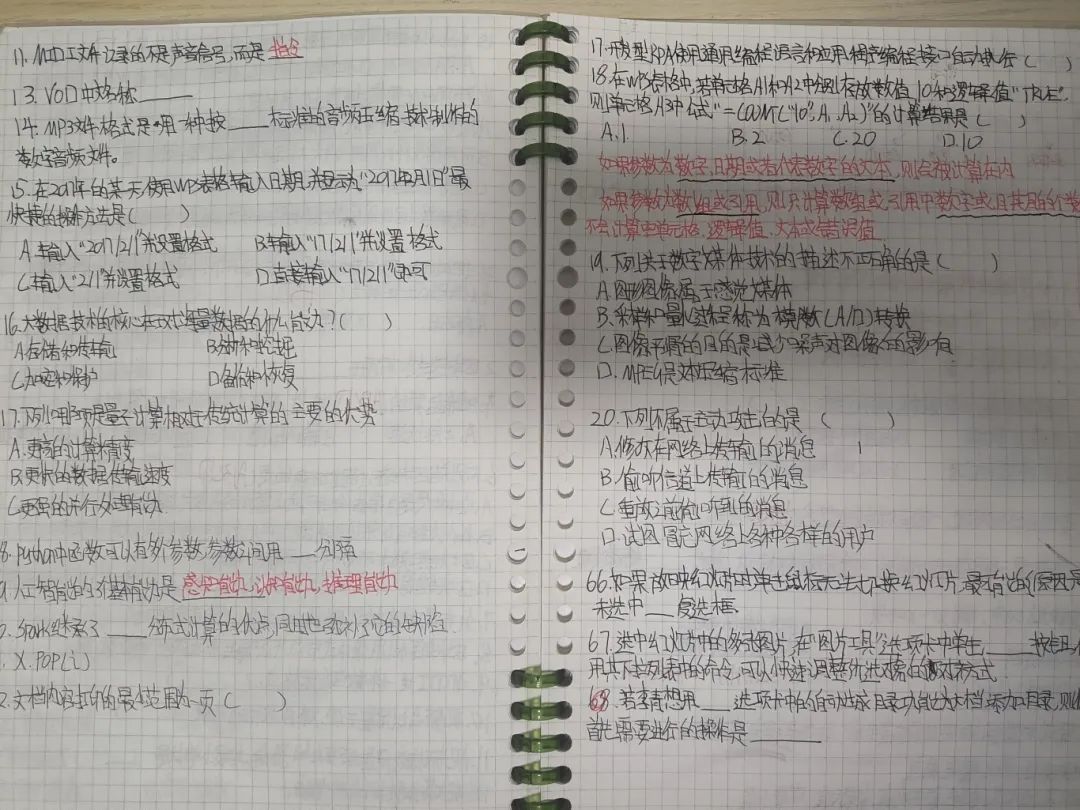 11. MIDI文件记录的不是声音信号,而是 指令
13. VOD中文名称______
14. MP3文件格式是用一种按____标准的音频压缩技术制作的
数字音频文件。
15. 在2017年的某天使用WPS表格输入日期,并显示为"2017年2月1日"最
快捷的操作方法是( )
A.输入"2017/2/1"并设置格式 B.输入"17/2/1"并设置格式
C.输入"2/1"并设置格式 D.直接输入"17/2/1"即可
16. 大数据技术的核心在于对海量数据的什么能力?( )
A.存储和传输 B.分析和挖掘
C.加密和保护 D.备份和恢复
17. 下列哪项是量子计算相对于传统计算的主要的优势
A.更高的计算精度
B.更快的数据传输速度
C.更强的并行处理能力
8. Python中函数可以有多个参数,参数之间用___分隔
9. 人工智能的基本能力是 感知能力,认知能力,推理能力
Spark继承了____分布式计算的优点,同时也弥补了它的缺陷
. X.POP(i)
2. 文档内容打印的最小范围为一页( )
17. 开发型RPA使用通用编程语言和应用程序编程接口自动执行( )
18. 在WPS表格中,若单元格A1和A2中分别存放数值10和逻辑值"TRUE",
则单元格A3中公式"=COUNT("10",A1,A2)"的计算结果是( )
A.1 B.2 C.20 D.10
如果参数为数字、日期或者代表数字的文本,则会被计算在内
如果参数为数组或引用,则只计算数组或引用中数字或日期的个数
不会计算空单元格、逻辑值、文本或错误值
19. 下列关于数字媒体技术的描述不正确的是( )
A.图形图像属于感觉媒体
B.采样和量化过程称为模数(A/D)转换
C.图像平滑的目的是减少噪声对图像的影响
D. MPEG是对压缩标准
20. 下列不属于主动攻击的是( )
A.修改在网络上传输的消息
B.偷听信道上传输的消息
C.重放之前偷听到的消息
D.试图冒充网络上各种各样的用户
66. 如果放映幻灯片时单击鼠标无法切换幻灯片,最有可能的原因是
未选中___复选框.
67. 选中幻灯片中的多张图片,在"图片工具"选项卡中单击_____按钮,
用其下拉列表中的命令,可以快速调整所选对象的对齐方式
68. 若李青想用___选项卡中的自动生成目录功能为文档添加目录,则
首先需要进行的操作是________